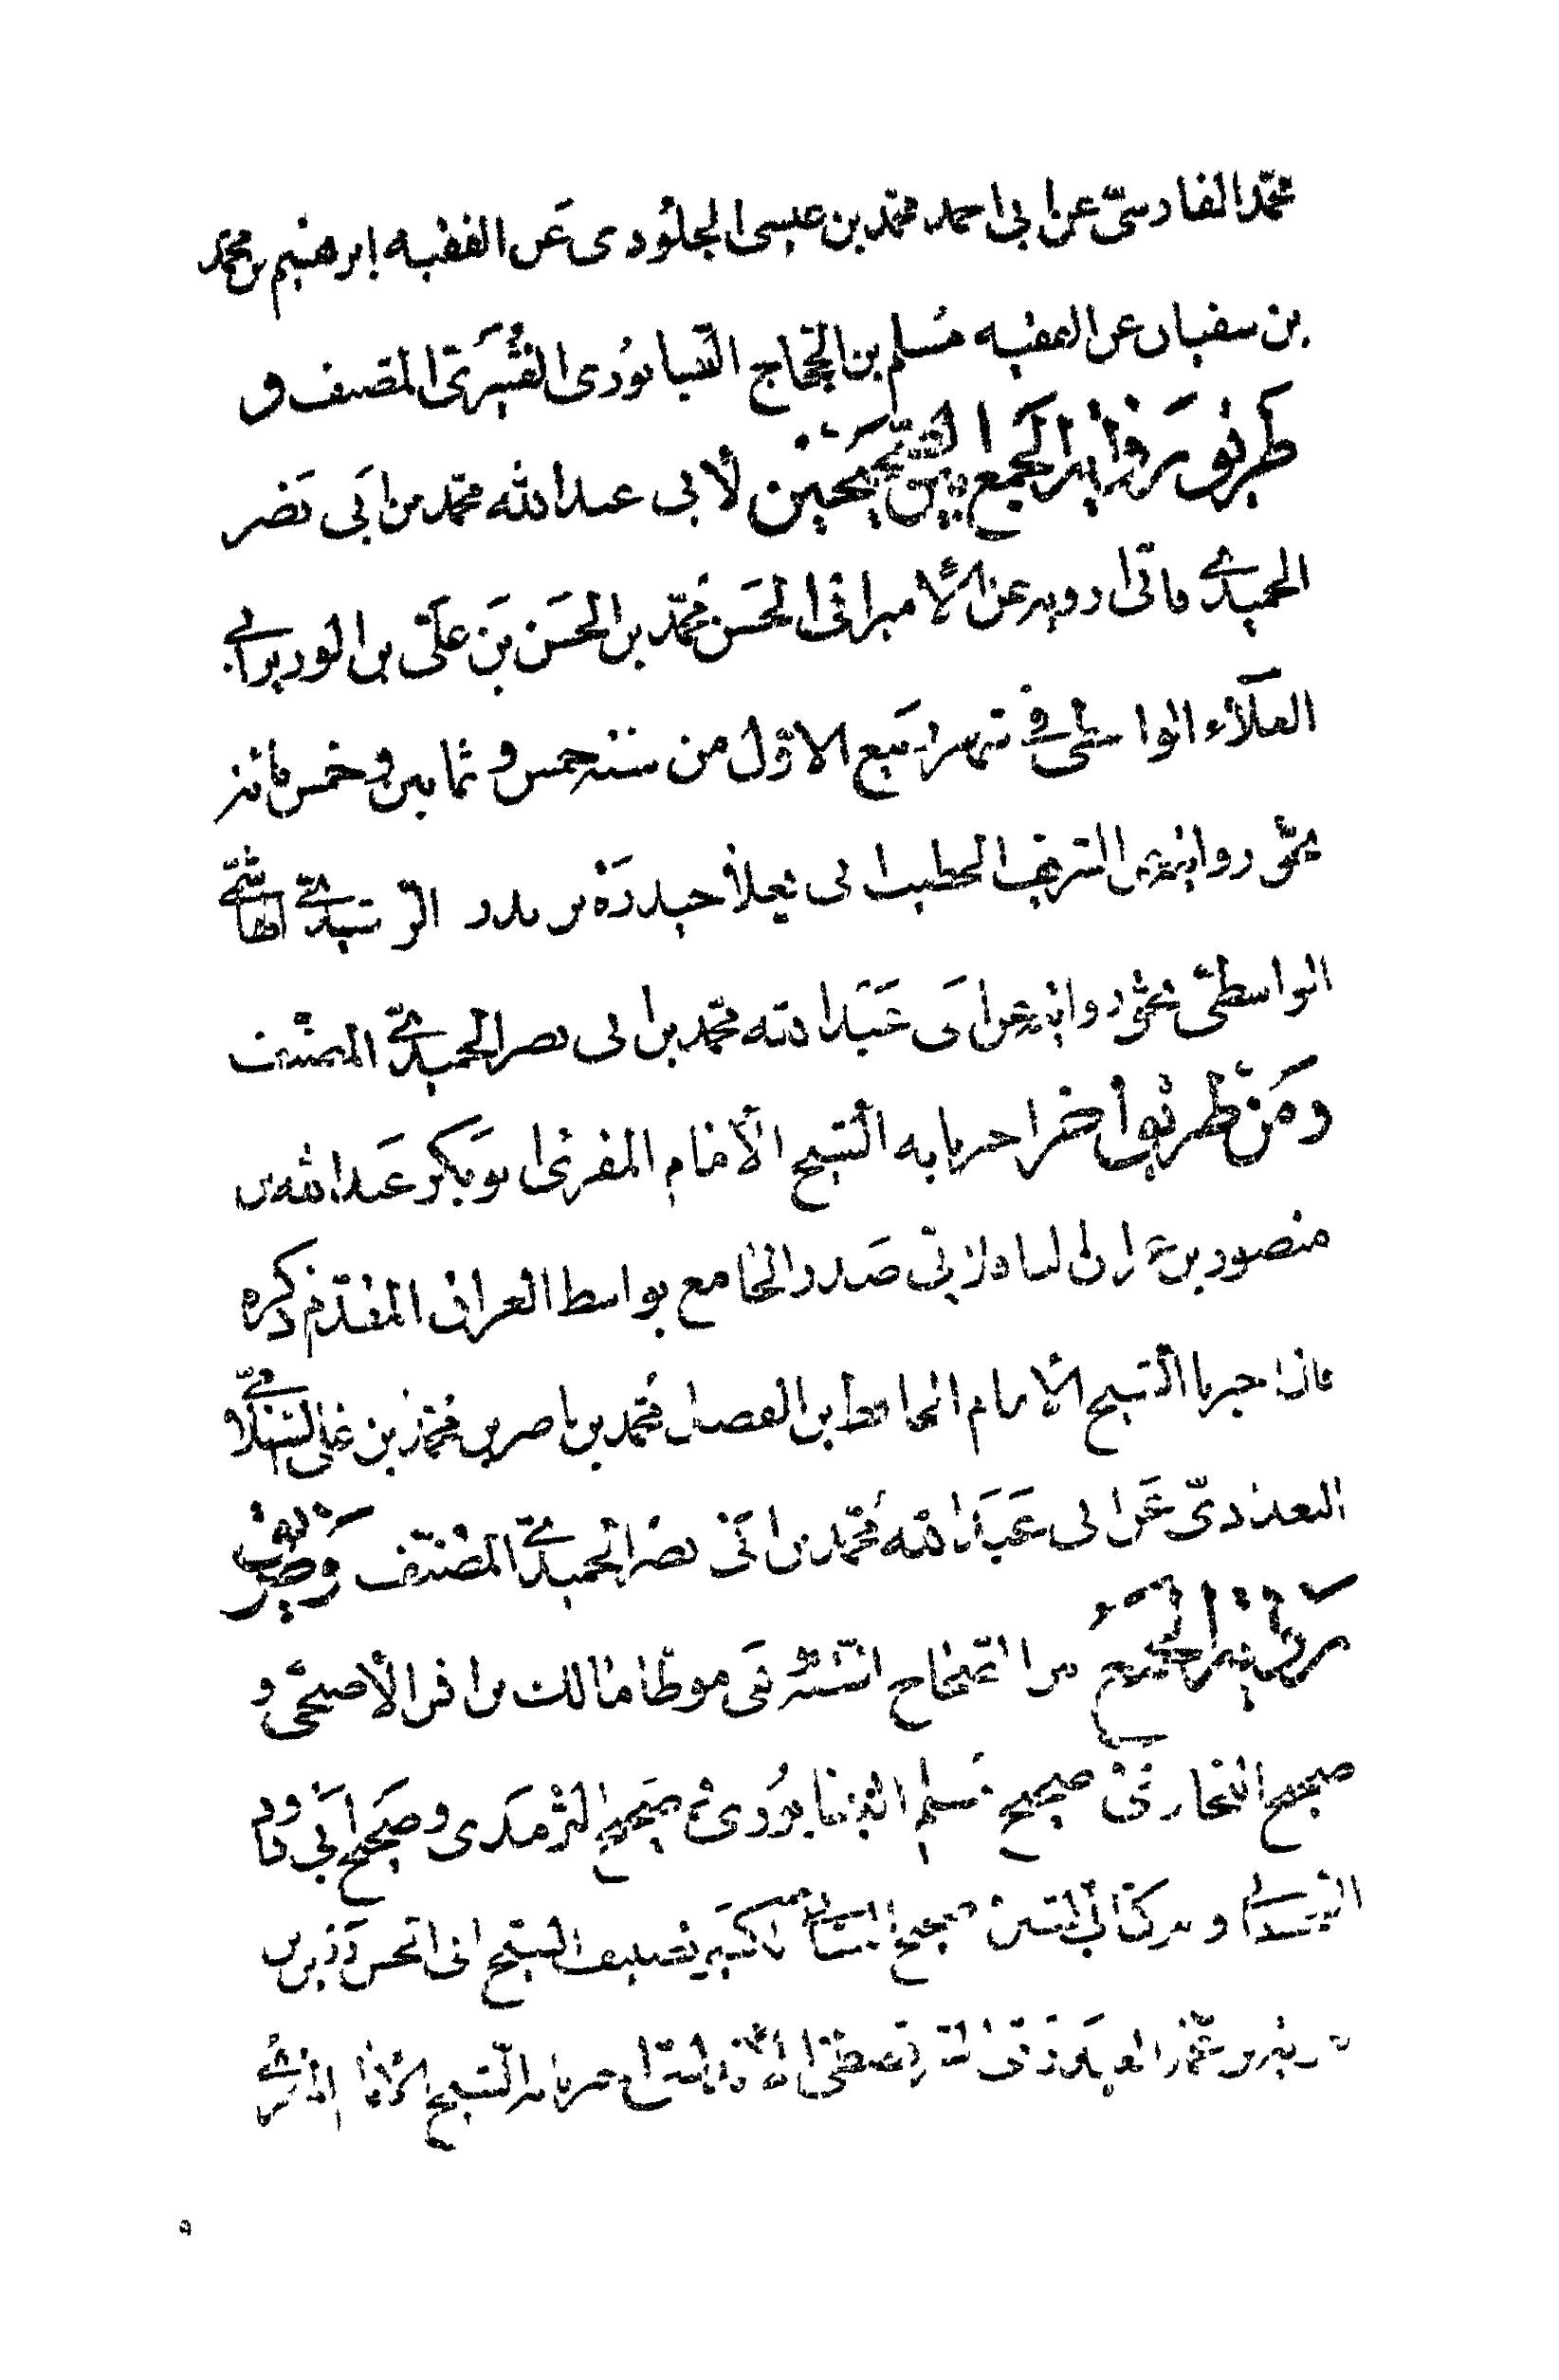 محمّد الفارسىّ عن ابى احمد محمّد بن عيسى الجلُودى عَن الفقيه إبرهيم بن محمّد
بن سفيان عن الفقيه مُسلم بن الحجّاج النيسابورُى القُشَيرىّ المصنف و
طَريق رَواية الجَمع بين الصّحيحَين لأبى عبد الله محمّد بن ابَى نَصر
الحميدىّ فانّى ارويه عن الأمير ابى الحَسَن مُحمّد بن الحسَن بَن علَىّ بن الوزير ابى
العَلآء الواسطى فى شهر ربَيع الاوّل من سنة خمس و ثمانين و خمس مائة
بحقّ روايته عن الشريف الخطيب ابى يعلأ حيدرَة بن بدر الرّشيدىّ الهاشمىّ
الواسطىّ بحقّ روايته عن ابَى عَبَدَ الله محمّد بن ابى نصر الحميدىّ المصنّف
ومَن طريق اخر اخبرنا به الشيخ الأمام المقرئ ابو بَكر عَبد الله بن
منصور بن عمران الباقلانىّ صَدر الجامع بواسط العراق المقدّم ذكره
فانه اخبرنا الشيخ الأمام الحافظ ابن الفضل مُحمّد بن ناصر بن مُحمّد بن على السّلامىّ
البغدادىّ عَن ابى عَبدَ الله مُحمّد بن ابَى نصر الحميدىّ المصَنّف وَطريق
رَواية الجَمع بين الصّحاح السّتّة فى موطّأ مالك بن انس الأصبحَى و
صحيح البخارىّ صحيح مُسلم النيسابورُىّ صَحيح الترمَذى و صَحيح ابَى داود
السجستانى و صحيح النسائى الكَبير تصنيف الشيخ ابى الحسن رَزين بن
معوية بن عمّار العبدرَىّ السرقسطىّ اخبرنا به الشيخ الأمام المقرئ
٩